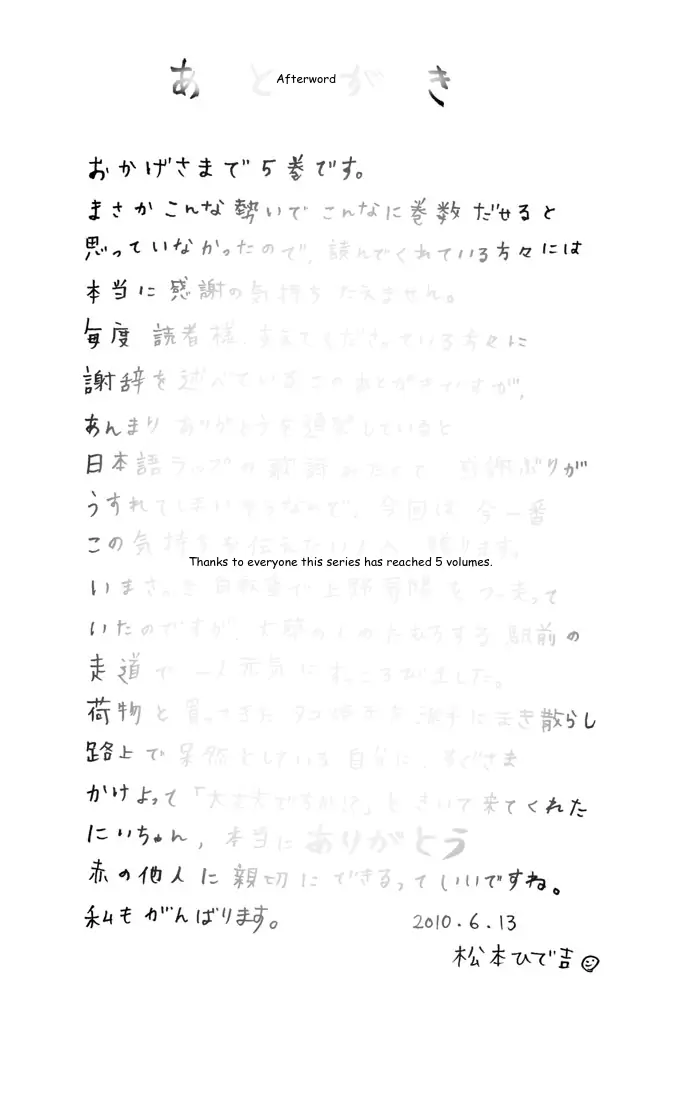 あとがき
Afterword
おかげさまで5巻です。
まさかこんな勢いでこんなに巻数だせると
思っていなかったので、読んでくれている方々には
本当に感謝の気持ちたえません。
毎度 読者様、ささえてくださっている方々に
謝辞を述べているこのあとがきですが、
あんまりありがとうを連発していると
日本語ラップの歌詞みたくて 感謝ぶりが
うすれてしまいそうなので、今回は今一番
この気持ちを伝えたい人へ 贈ります。
Thanks to everyone this series has reached 5 volumes.
いまさっき自転車で上野 をつっ走って
いたのですが、大勢の人のたむろする駅前の
走道で一人元気にすっころびました。
荷物と買ってきた を派手にまき散らし
路上で呆然としている自分に、すぐさま
かけよって「大丈夫ですか!?」ときいて来てくれた
にいちゃん,本当にありがとう
赤の他人に親切にできるっていいですね。
私もがんばります。 2010.6.13
松本ひで吉